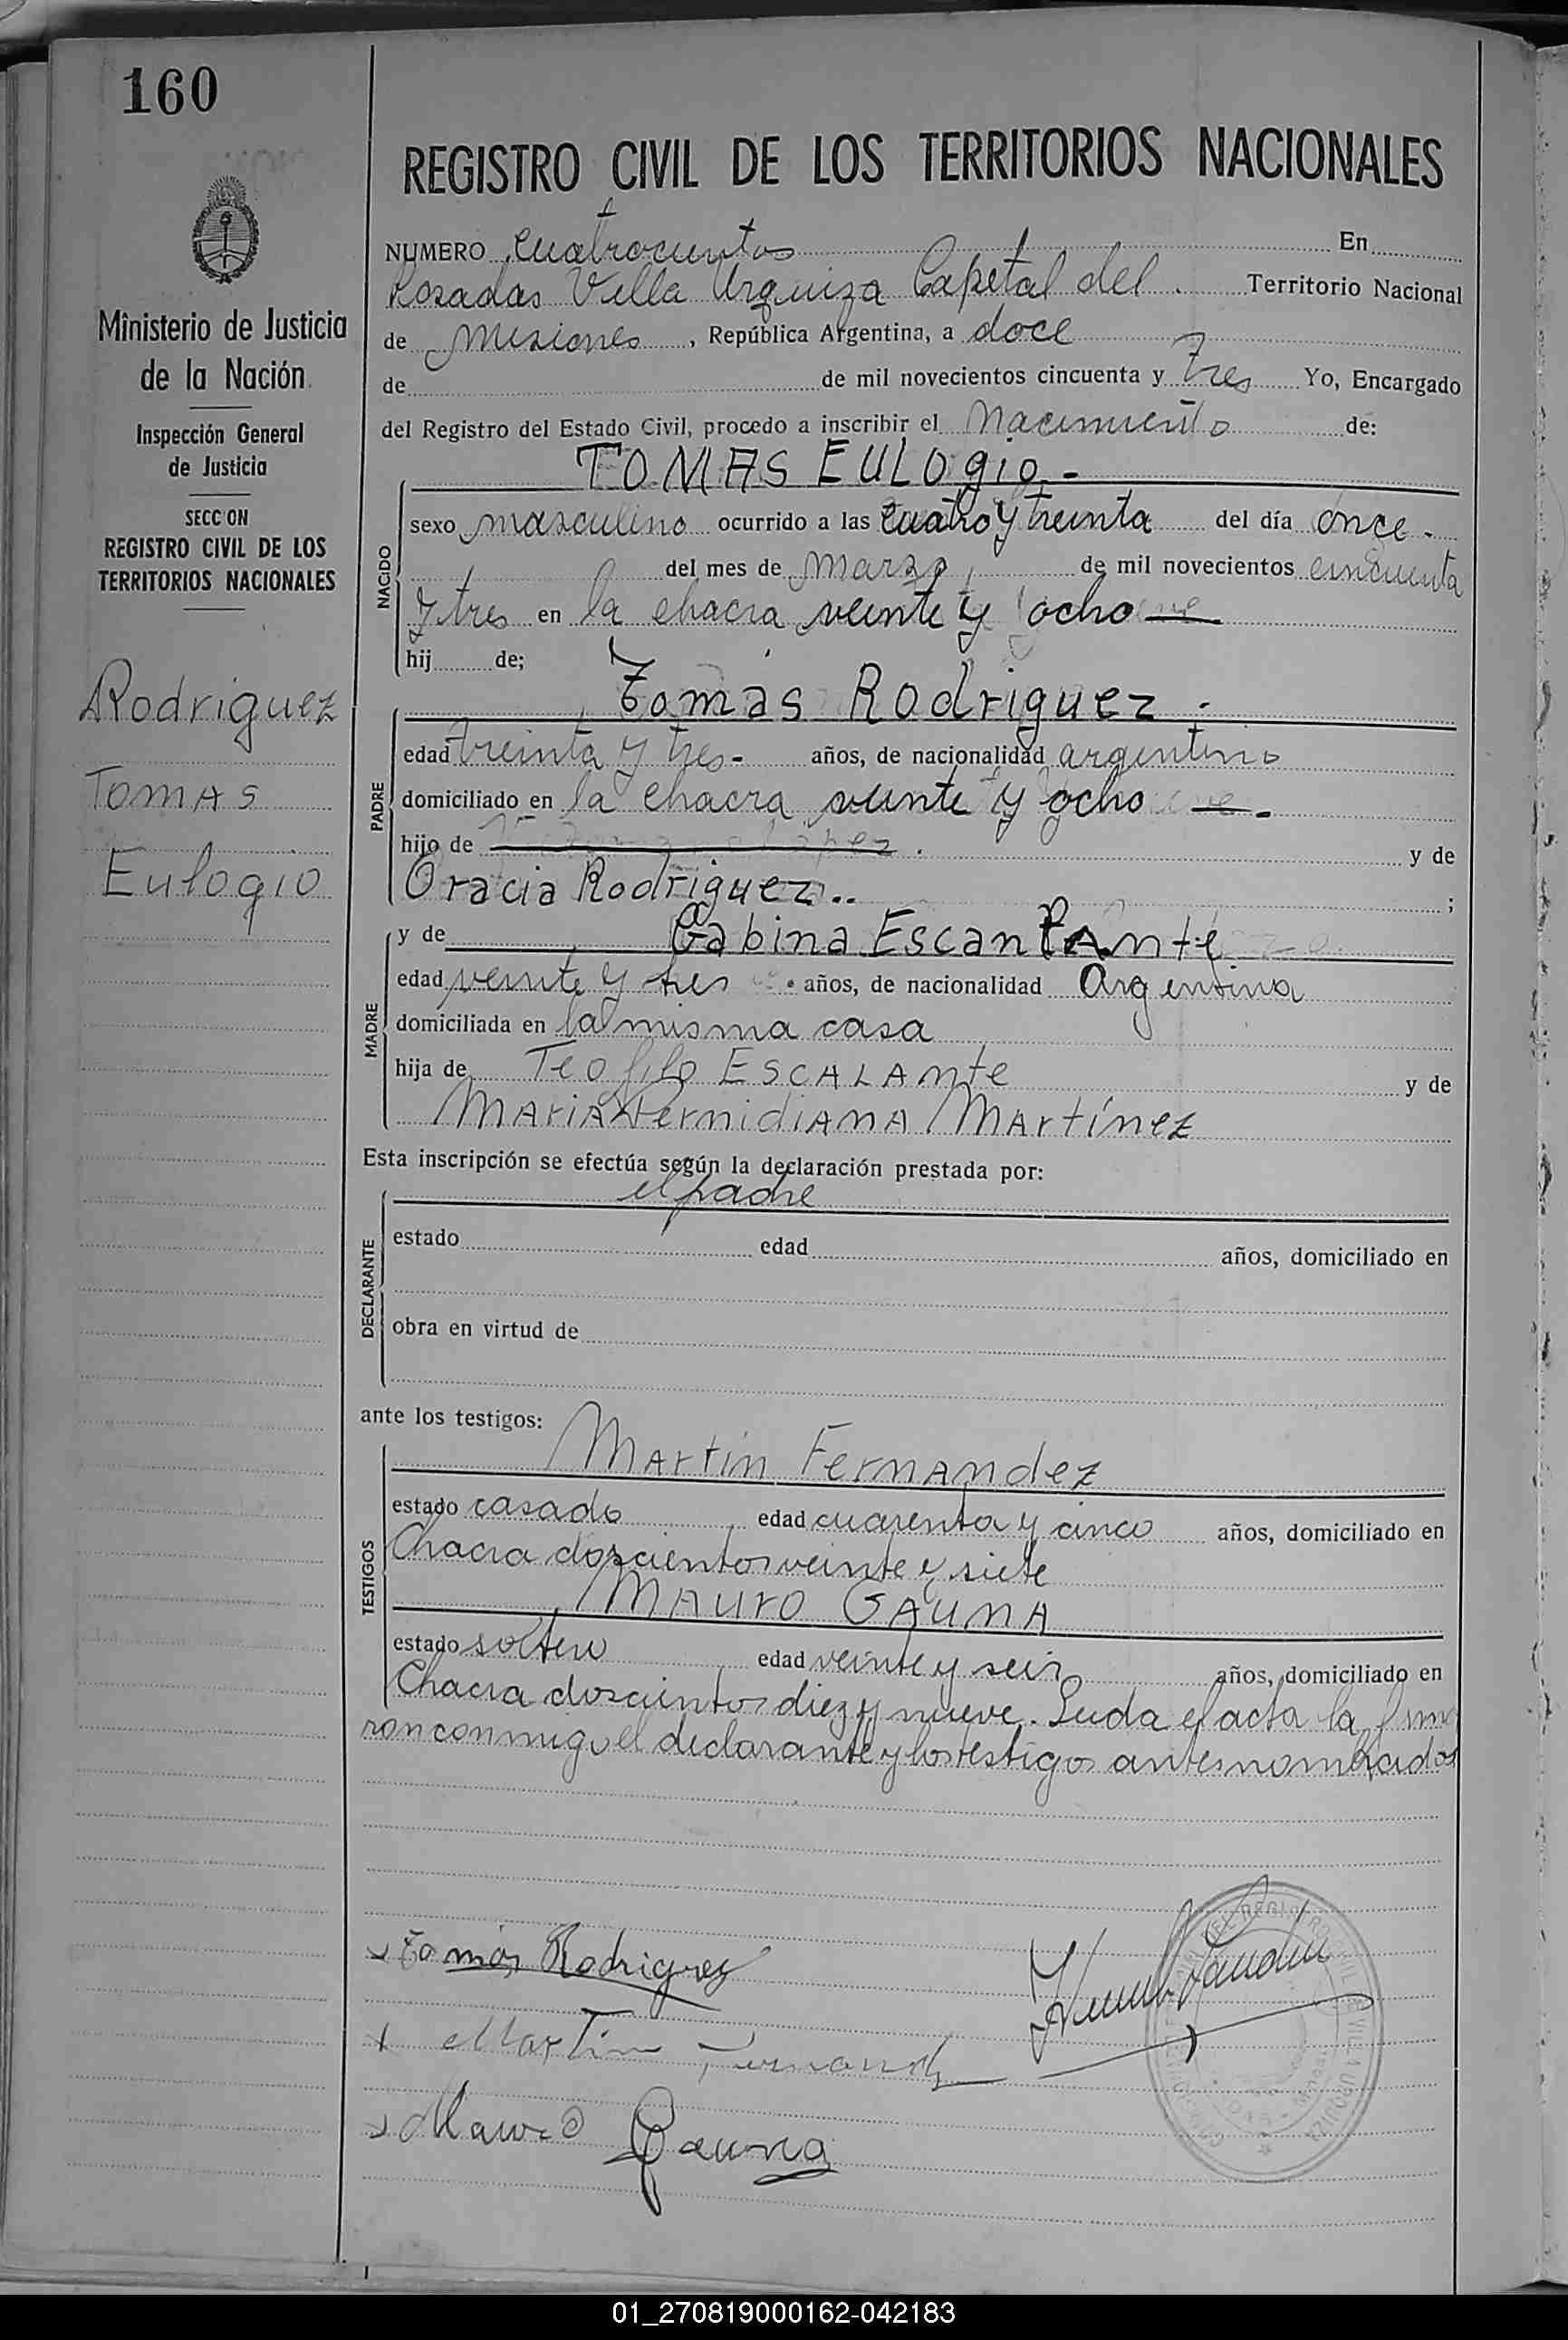 160
REGISTRO CIVIL DE LOS TERRITORIOS NACIONALES
Ministerio de Justicia
de la Nación
Inspección General
de Justicia
SECCION
REGISTRO CIVIL DE LOS
TERRITORIOS NACIONALES
Rodriguez
Tomas
Eulogio
NUMERO cuatrocientos En
Posadas Villa Urquiza Capital del Territorio Nacional
de Misiones, República Argentina, a doce
de de mil novecientos cincuenta y tres Yo, Encargado
del Registro del Estado Civil, procedo a inscribir el Nacimiento de:
TOMAS EULOGIO.-
NACIDO
sexo masculino ocurrido a las cuatro y treinta del día once.-
del mes de marzo, de mil novecientos cincuenta
y tres en la chacra veinte y ocho
hij de;
Tomás Rodriguez.
PADRE
edad treinta y tres- años, de nacionalidad argentino
domiciliado en la chacra veinte y ocho
hijo de y de
Oracia Rodriguez.. ;
y de Gabina
MADRE
edad veinte y tres años, de nacionalidad Argentina
domiciliada en la misma casa
hija de Teofilo ESCALANte y de
MARIA MARtínez
Esta inscripción se efectúa según la declaración prestada por:
el padre
DECLARANTE
estado edad años, domiciliado en
obra en virtud de
ante los testigos:
MARtín FerNANdez
TESTIGOS
estado casado edad cuarenta y cinco años, domiciliado en
Chacra doscientos veinte y siete
MAURO GAUNA
estado soltero edad veinte y seis años, domiciliado en
Chacra doscientos diez y nueve. Leida el acta la firma
ron conmigo el declarante y los testigos antes nombrados
Tomás Rodriguez
Martin Fernandez
Mauro Gauna
01_270819000162-042183